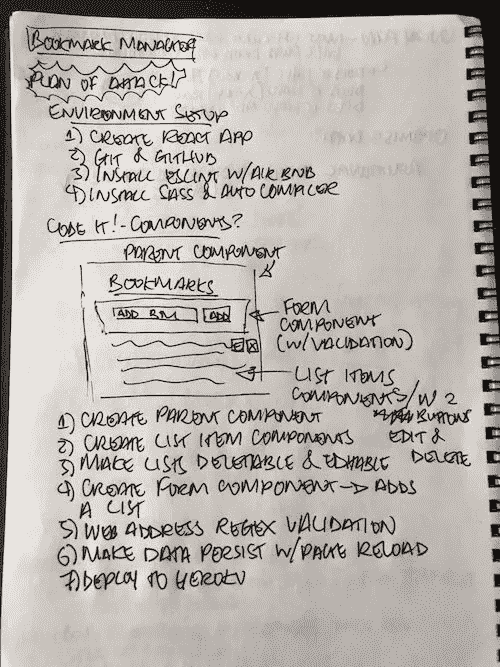 BOOKMARK MANAGER
PLAN OF ATTACK!
ENVIRONMENT SETUP
1) CREATE REACT APP
2) GIT & GITHUB
3) INSTALL ESLINT W/AIR BNB
4) INSTALL SASS & AUTO COMPILER
CODE IT! - COMPONENTS?
PARENT COMPONENT
BOOKMARKS
ADD BKM ADD
FORM
COMPONENT
(W/VALIDATION)
E X
LIST ITEMS
COMPONENTS/W 2
BUTTONS
EDIT &
DELETE
1) CREATE PARENT COMPONENT
2) CREATE LIST ITEM COMPONENTS
3) MAKE LISTS DELETABLE & EDITABLE
4) CREATE FORM COMPONENT → ADDS
A LIST
5) WEB ADDRESS REGEX VALIDATION
6) MAKE DATA PERSIST W/PAGE RELOAD
7) DEPLOY TO HEROKU